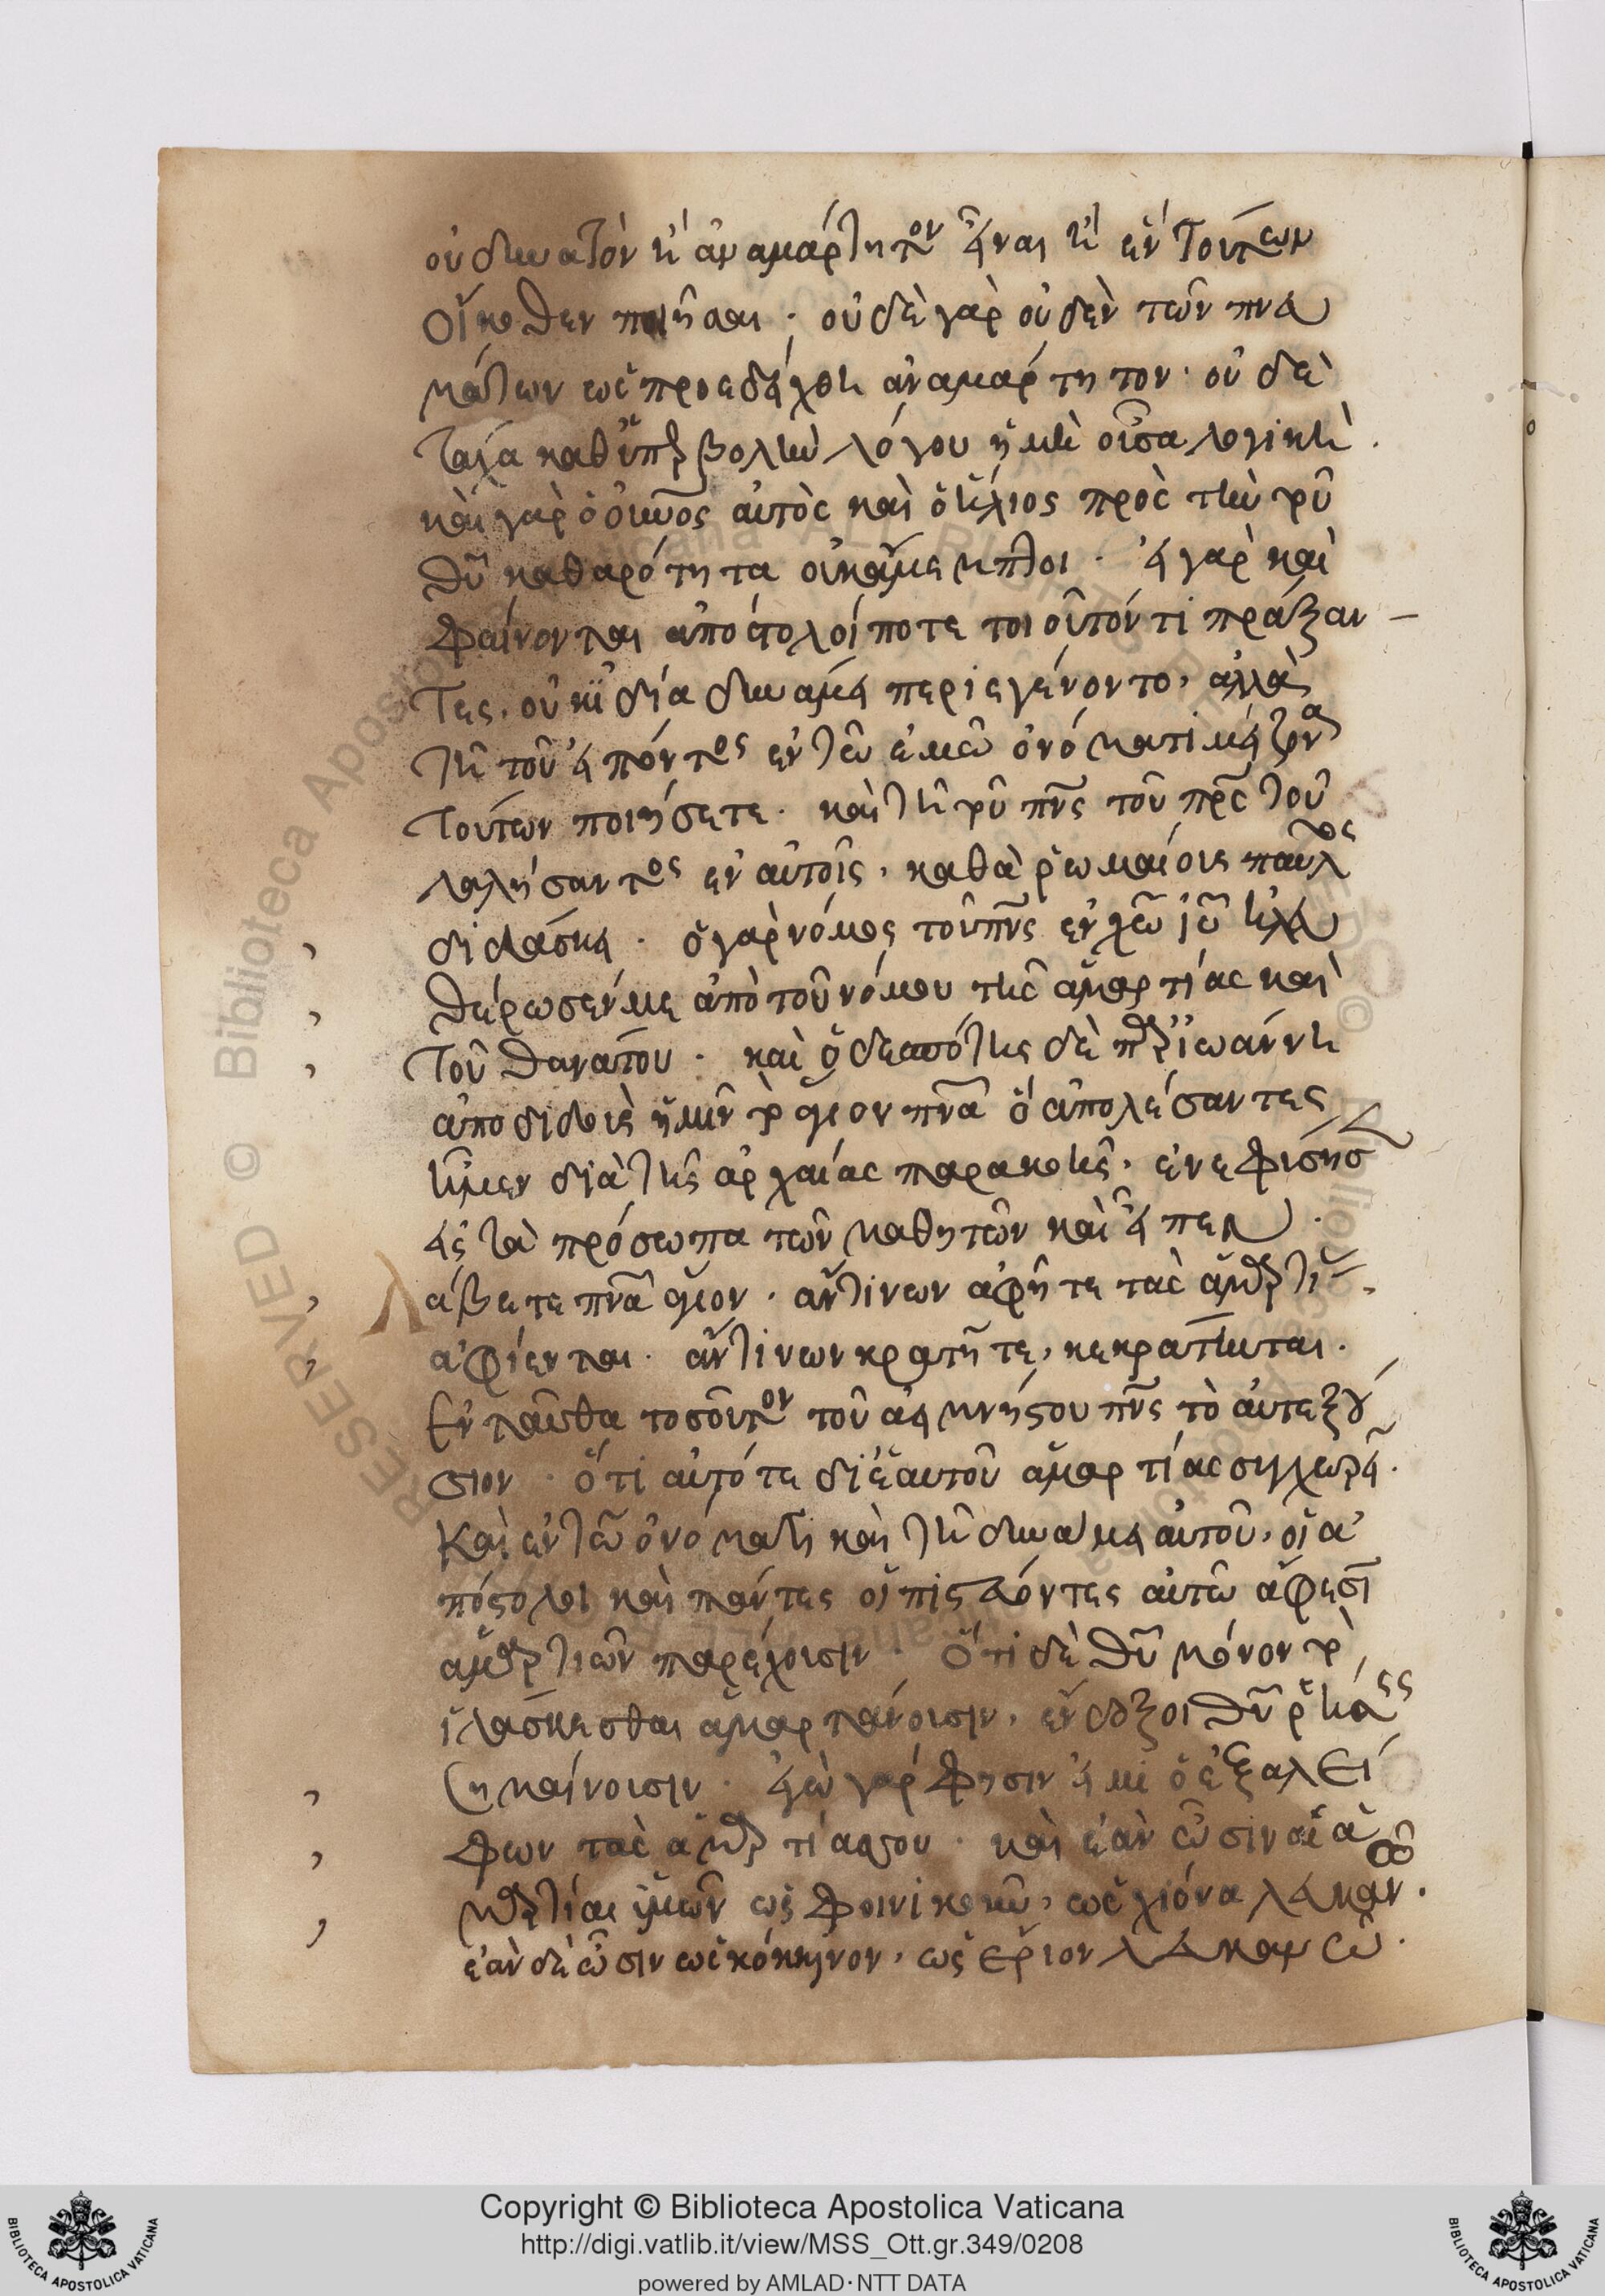 οὐ δυνατὸν ἢ ἀναμάρτητον εἶναι ἢ ἕν τούτων
οἴκοθεν ποιῆσαι · οὐδὲ γὰρ οὐδὲν τῶν πνευ
μάτων ὡς προεδείχθη ἀναμάρτητον · οὐδὲ
καθ' ὑπερβολὴν λόγου ἡ μὴ οὖσα λογικὴ ·
καὶ γὰρ ὁ αὐτὸς καὶ ὁ ἥλιος πρὸς τὴν τοῦ
θυ καθαρότητα οὐκ ἄμεμπτοι · εἰ γὰρ καὶ
φαίνονται ἀπόστολοί ποτε τοιοῦτόν τι πράξαν
τες, οὐκ ἰδία δυνάμει περιεγένοντο, ἀλλὰ
τῆ τοῦ εἰπόντος ἐν τῶ ἐμῶ ὀνόματι μείζονα
τούτων ποιήσετε · καὶ τῆ τοῦ πνς τοῦ πρς τοῦ
λαλήσαντος ἐν αὐτοῖς, καθὰ ῥωμαίοις παῦλος
διδάσκει · ὁ γὰρ νόμος τοῦ πνς ἐν χῶ ἰῦ ἠλευ
θέρωσέν με ἀπὸ τοῦ νόμου τῆς ἁμαρτίας καὶ
τοῦ θανάτου · καὶ ὁ δεσπότης δὲ παρ ἰωάννη
ἀποδιδοὺς ἡμῖν τὸ θεῖον πνα ὃ ἀπολέσαντες
ἦμεν διὰ τῆς ἀρχαίας παρακοῆς, ἐνεφύσησεν
εἰς τὰ πρόσωπα τῶν μαθητῶν καὶ εἶπεν ·
λάβετε πνα θεῖον · ἄν τινων ἀφῆτε τὰς ἁμαρτίας
ἀφίενται · ἄν τινων κρατῆτε, κεκράτηνται ·
Ἐνταῦθα τοσοῦτον τοῦ ἀειμνήστου πνς τὸ αὐτεξού
σιον · ὅτι αὐτό τε δι' ἑαυτοῦ ἁμαρτίας συγχωρεῖ ·
καὶ ἐν τῶ ὀνόματι καὶ τῆ δυνάμει αὐτοῦ, οἱ ἀ
πόστολοι καὶ πάντες οἱ πιστεύοντες αὐτῶ ἄφεσιν
ἁμαρτιῶν παρέχουσιν · Ὅτι δὲ θυ μόνον τὸ
ἱλάσκεσθαι ἁμαρτάνουσιν, ἔνδοξοι θυ
σημαίνουσιν · ἐγὼ γάρ φησιν εἰμὶ ὁ ἐξαλεί
φων τὰς ἁμαρτίας σου · καὶ ἐὰν ὦσιν αἱ ἁ
μαρτίαι ὑμῶν ὡς φοινικοῦν, ὡς χιόνα λευκανῶ ·
ἐὰν δὲ ὦσιν ὡς κόκκινον, ὡς ἔριον λευκανῶ ·
Copyright © Biblioteca Apostolica Vaticana
http://digi.vatlib.it/view/MSS_Ott.gr.349/0208
powered by AMLAD·NTT DATA